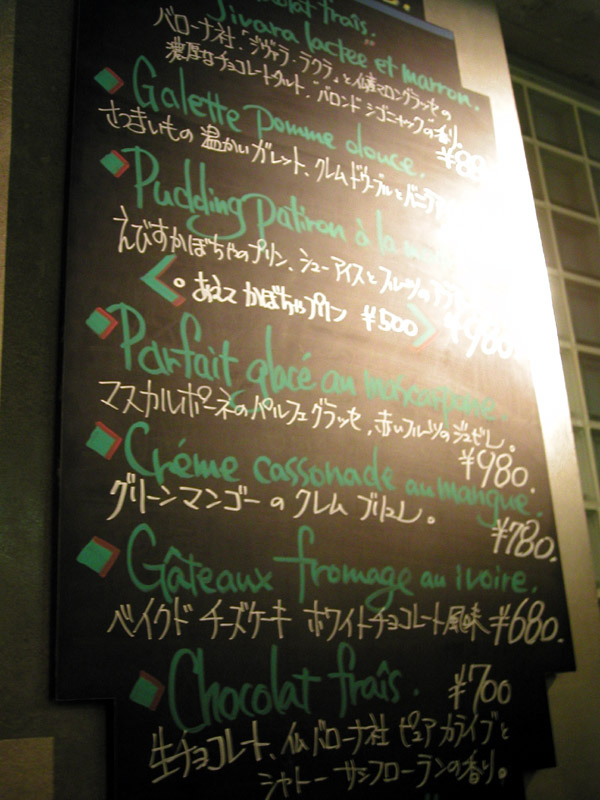 Chocolat fraîs.
Jivara lactee et marron.
バローナ社「ジヴァラ・ラクテ」と仏産マロングラッセの
濃厚なチョコレートタルト、
Galette pomme douce.
さつまいもの温かいガレット、クレムドゥーブルとバニラ
Pudding patiron à la
えびすかぼちゃのプリン、シューアイスとフルーツの
< 。あねてかぼちゃプリン ¥500 > ¥980.
Parfait glacé au mascarpone.
マスカルポーネのパルフェグラッセ、赤いフルーツのジュビレ。
¥980.
Créme cassonade au mangue.
グリーンマンゴーのクレムブリュレ。
¥780.
Gâteaux fromage au ivoire.
ベイクドチーズケーキ ホワイトチョコレート風味 ¥680.
Chocolat fraîs. ¥700
生チョコレート、仏バローナ社 ピュアカライブと
シャトーサンフローランの香り。